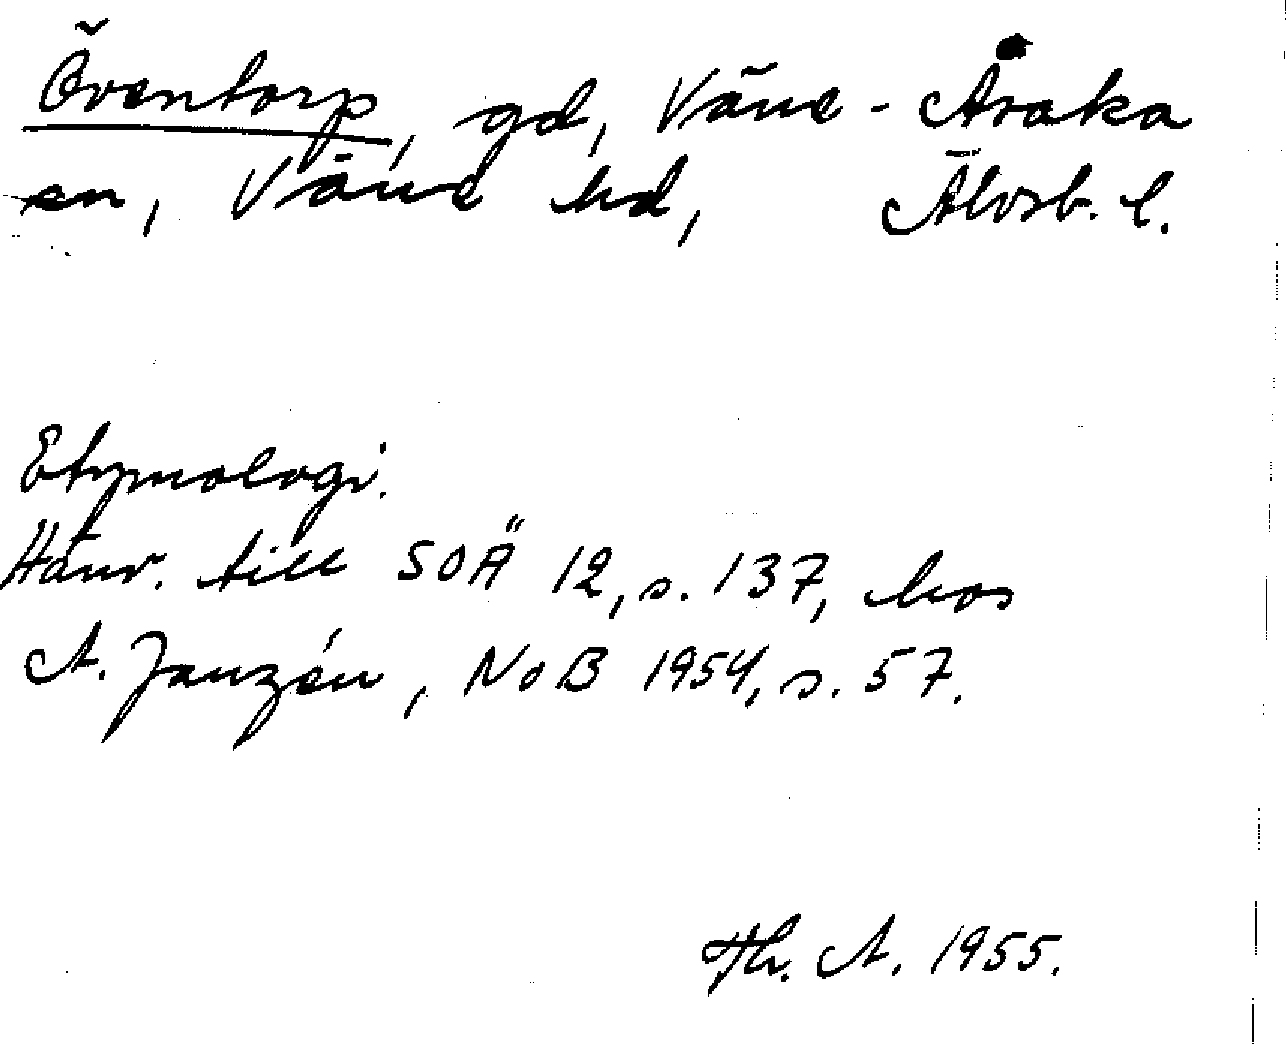 Öventorp, gd, Väne-Åsaka
sn, Väne hd, Älvsb. l.
Etymologi.
Hänv. till SOÄ 12, s. 137, hos
A. Janzén, NoB 1954, s. 57.
Th. A. 1955.